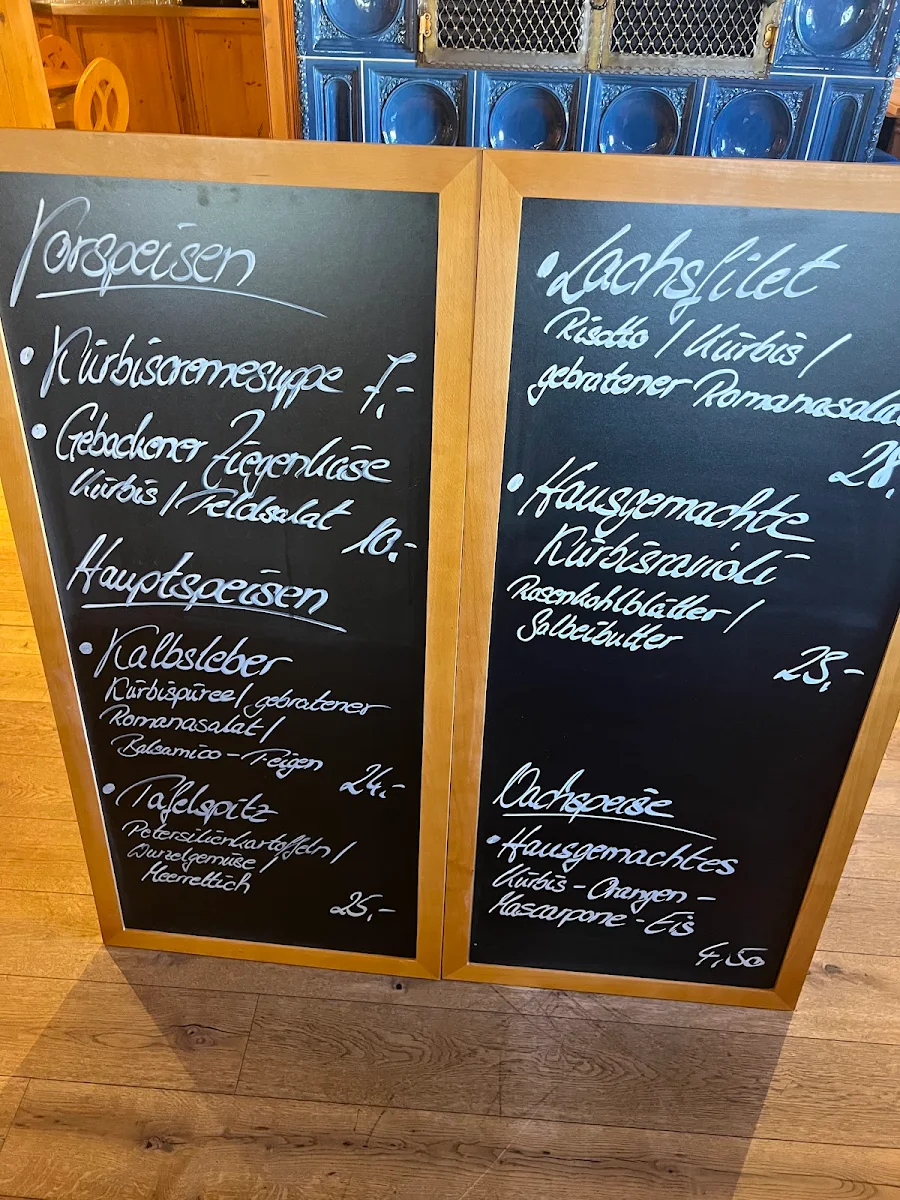 Vorspeisen
• Kürbiscremesuppe 7,-
• Gebackener Ziegenkäse
Kürbis / Feldsalat 10,-
Hauptspeisen
• Kalbsleber
Kürbispüree / gebratener
Romanasalat /
Balsamico-Feigen 24,-
• Tafelspitz
Petersilienkartoffeln /
Wurzelgemüse /
Meerrettich
25,-
• Lachsfilet
Risotto / Kürbis /
gebratener Romanasalat
28,
• Hausgemachte
Kürbisravioli
Rosenkohlblätter /
Salbeibutter
23,-
Nachspeise
• Hausgemachtes
Kürbis-Orangen-
Mascarpone-Eis
4,50